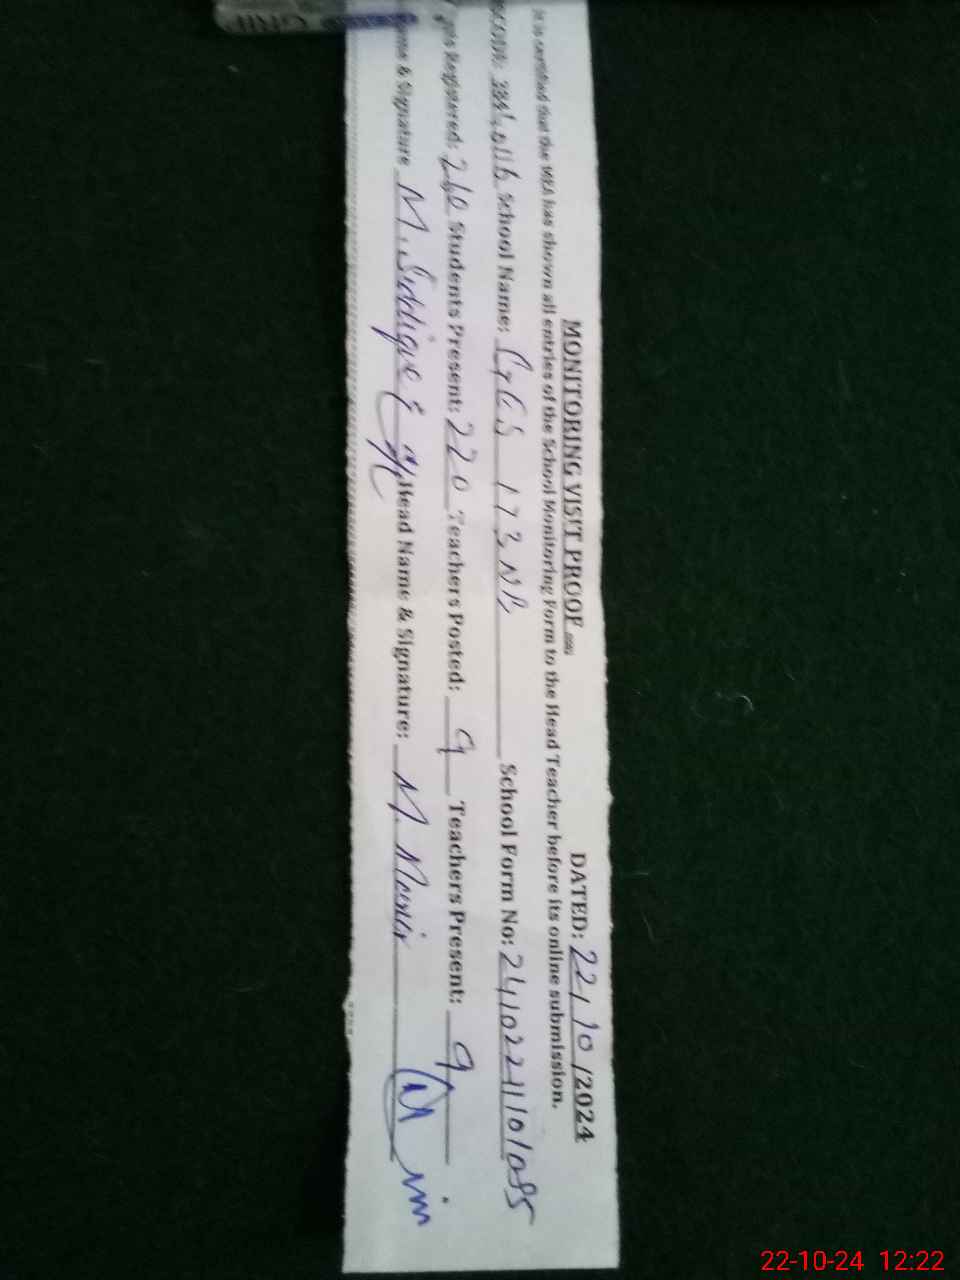 GRIP
MONITORING VISIT PROOF DATED: 22/10/2024
It is certified that the MEA has shown all entries of the School Monitoring Form to the Head Teacher before its online submission.
School Name: GGES 173 NB School Form No: 241022
Registered: 260 Students Present: 220 Teachers Posted: 9 Teachers Present: 9
& Signature M. Siddique Head Name & Signature: M. Munir
22-10-24 12:22